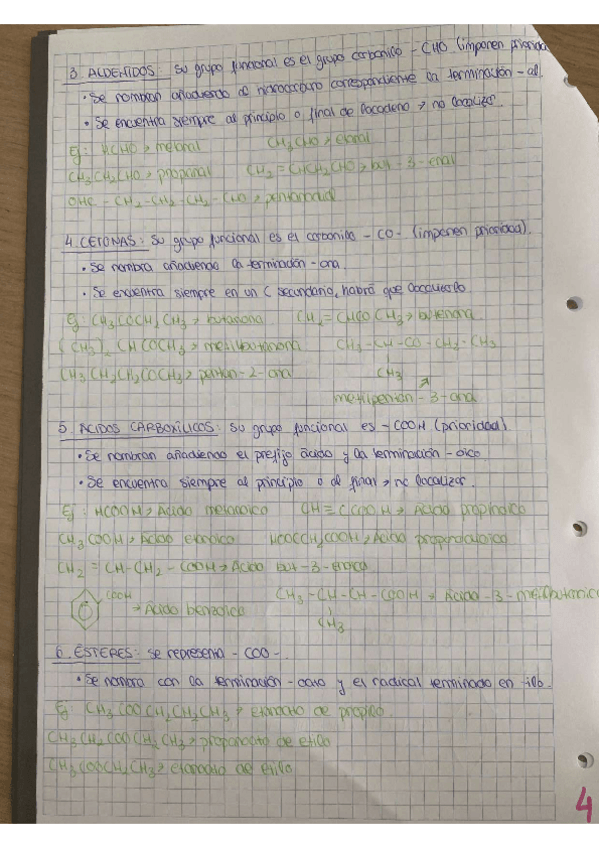 3. ALDEHIDOS: Su grupo funcional es el grupo carbonilo - CHO (imponen prioridad
• Se nombran añadiendo al hidrocarburo correspondiente la terminación -al.
• Se encuentra siempre al principio o final de la cadena → no localizar
Ej: HCHO → metanal CH3CHO → etanal
CH3CH2CHO → propanal CH2 = CHCH2CHO → but-3-enal
OHC - CH2 - CH2 - CH2 - CHO → pentanodial
4. CETONAS: Su grupo funcional es el carbonilo - CO - (imponen prioridad).
• Se nombra añadiendo la terminación -ona.
• Se encuentra siempre en un C secundario, habrá que localizarlo
Ej: CH3COCH2CH3 → butanona CH2 = CHCOCH3 → butenona
(CH3)2 CHCOCH3 → metilbutanona CH3 - CH - CO - CH2 - CH3
CH3CH2CH2COCH3 → pentan-2-ona CH3
metilpentan-3-ona
5. ÁCIDOS CARBOXÍLICOS: Su grupo funcional es -COOH (prioridad)
• Se nombran añadiendo el prefijo ácido y la terminación -oico
• Se encuentra siempre al principio o al final → no localizar
Ej: HCOOH → Ácido metanoico CH≡CCOOH → Ácido propinoico
CH3COOH → Ácido etanoico HOOCCH2COOH → Ácido propanodioico
CH2 = CH - CH2 - COOH → Ácido but-3-enoico
COOH → Ácido benzoico CH3 - CH - CH - COOH → Ácido -3-metilbutanoico
CH3
6. ÉSTERES: Se representa - COO -.
• Se nombra con la terminación -oato y el radical terminado en -ilo.
Ej: CH3COOCH2CH2CH3 → etanoato de propilo.
CH3CH2COOCH2CH3 → propanoato de etilo
CH3COOCH2CH3 → etanoato de etilo
4